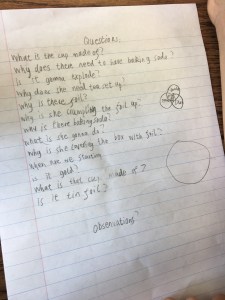 Question:
What is the cup made of?
Why does there need to have baking soda?
Is it gonna explode?
Why does she need two set up?
Why is there foil?
Why is she clumping the foil up?
Why is there baking soda?
What is she gonna do?
Why is she covering the box with foil?
When are we starting
is it gold?
What is that cup made of?
Is it tin foil?
Observations